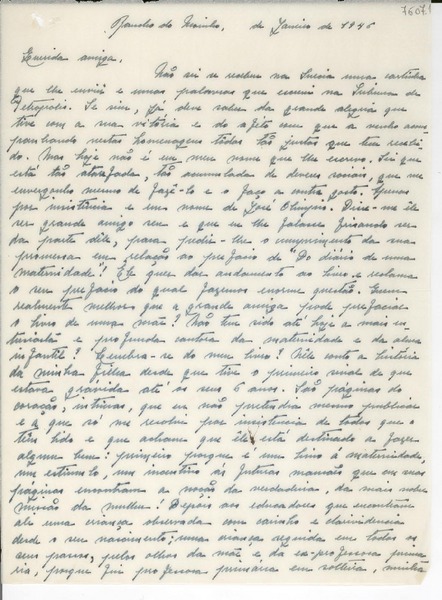 76071
Rancho do Moinho, de Janeiro de 1946
Querida amiga,
Não sei se recebeu na Suécia uma cartinha
que lhe enviei e umas palavras que escrevi na Tribuna de
Petropolis. Se sim, já deve saber da grande alegria que
tive com a sua vitória e do afeto com que a venho acom
panhando nestas homenagens todas tão justas que tem recebi
do. Mas hoje não é em meu nome que lhe escrevo. Sei que
está tão atarefada, tão acumulada de deveres sociais, que me
envergonho mesmo de fazê-lo e o faço a contra gosto. Apenas
por insistencia e em nome de José Olimpio. Disse-me êle
ser grande amigo seu e que eu lhe falasse frisando ser
da parte dêle, para pedir-lhe o cumprimento da sua
promessa em relação ao prefacio de "Do diário de uma
maternidade". Ele quer dar andamento ao livro e reclama
o seu prefacio do qual fazemos enorme questão. Quem
realmente melhor que a grande amiga pode prefaciar
o livro de uma mãe? Não tem sido até hoje a mais en
tusiasta e profunda cantora da maternidade e da alma
infantil? Lembra-se do meu livro? Nele conto a história
da minha filha desde que tive o primeiro sinal de que
estava grávida até os seus 6 anos. São páginas do
coração, intimas, que eu não pretendia mesmo publicar
e a que só me resolvo por insistencia de todos que o
têm lido e que acham que êle está destinado a fazer
algum bem: primeiro porque é um hino á maternidade,
um estímulo, um incentivo ás futuras mamães que em suas
páginas encontram a noção da verdadeira, da mais nobre
missão da mulher. Depois aos educadores que encontram
ali uma criança observada com carinho e clarividencia
desde o seu nascimento; uma criança seguida em todos os
seus passos, pelos olhos da mãe e da ex-professora prima
ria, porque fui professora primária em solteira, minha